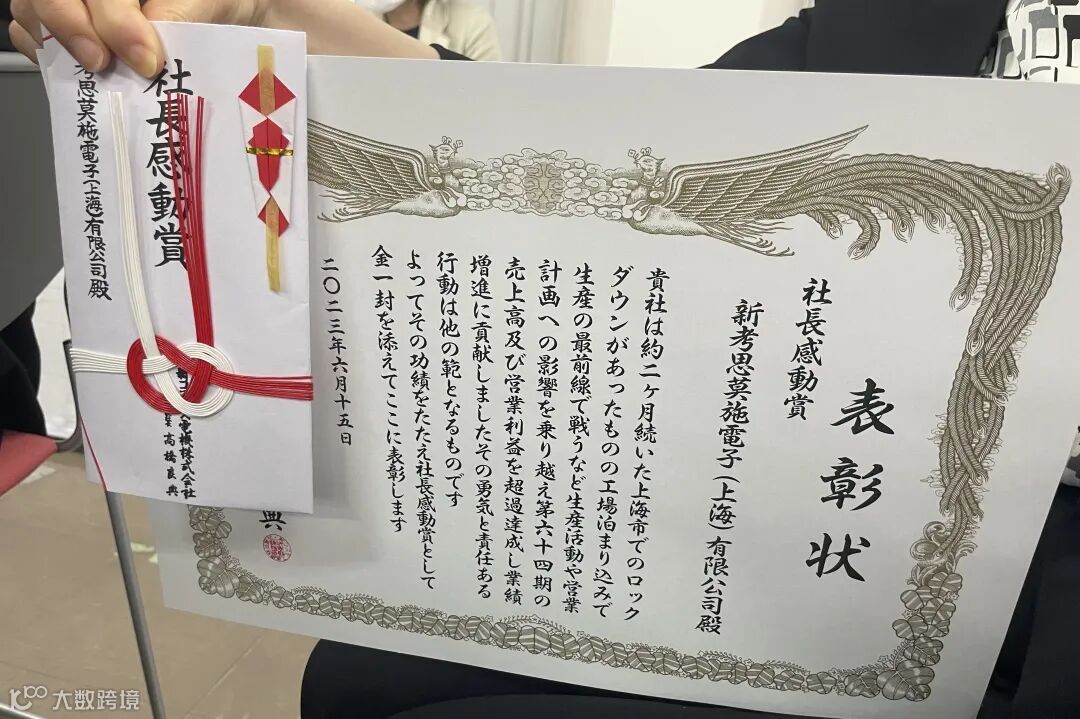 表彰状
社長感動賞
新考思莫施電子(上海)有限公司殿
貴社は約二ヶ月続いた上海市でのロック
ダウンがあったものの工場泊まり込みで
生産の最前線で戦うなど生産活動や営業
計画への影響を乗り越え第六十四期の
売上高及び営業利益を超過達成し業績
増進に貢献しましたその勇気と責任ある
行動は他の範となるものです
よってその功績をたたえ社長感動賞として
金一封を添えてここに表彰します
二〇二三年六月十五日
典
社長感動賞
考思莫施電子(上海)有限公司殿
電機株式会社
高橋良典
大数跨境